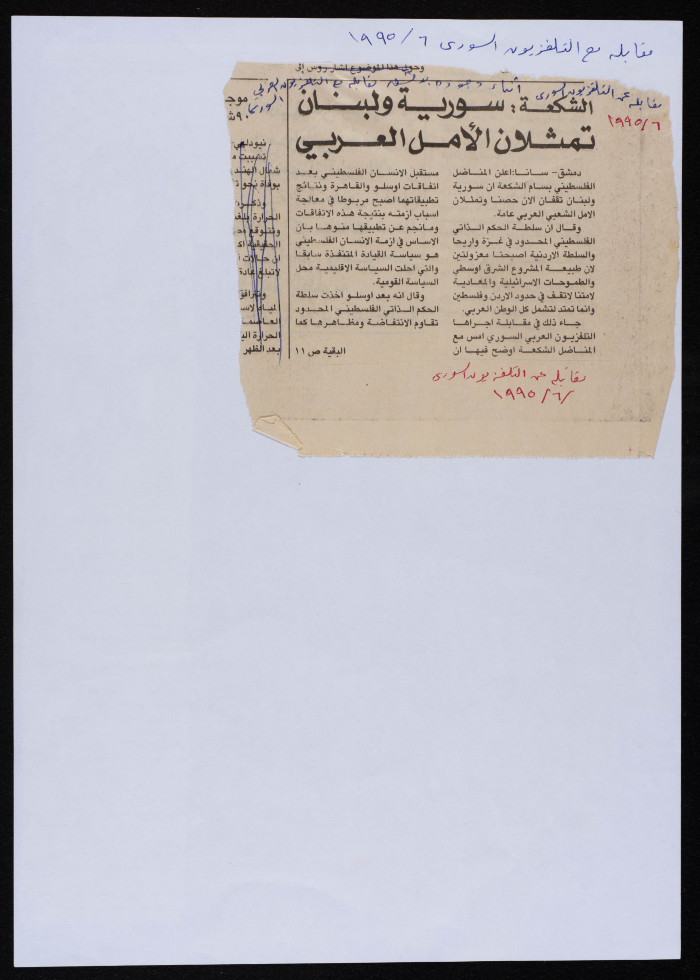 مقابله مع التلفزيون السورى ٦/ ١٩٩٥
وحول هذا الموضوع اشار روس إلى
أثناء وجوده مقابله مع التلفزيون العربي
السوري
مقابله عن التلفزيون السورى
١٩٩٥/٦
الشكعة: سورية ولبنان
تمثلان الأمل العربي
دمشق- سانا:اعلن المناضل
الفلسطيني بسام الشكعة ان سورية
ولبنان تقفان الان حصنا وتمثلان
الامل الشعبي العربي عامة.
وقال ان سلطة الحكم الذاتي
الفلسطيني المحدود في غزة واريحا
والسلطة الاردنية اصبحتا معزولتين
لان طبيعة المشروع الشرق اوسطي
والطموحات الاسرائيلية والمعادية
لامتنا لاتقف في حدود الاردن وفلسطين
وانما تمتد لتشمل كل الوطن العربي.
جاء ذلك في مقابلة اجراها
التلفزيون العربي السوري امس مع
المناضل الشكعة اوضح فيها ان
مستقبل الانسان الفلسطيني بعد
اتفاقات اوسلو والقاهرة ونتائج
تطبيقاتهما اصبح مربوطا في معالجة
اسباب ازمته بنتيجة هذه الاتفاقات
ومانجم عن تطبيقها منوها بان
الاساس في ازمة الانسان الفلسطيني
هو سياسة القيادة المتنفذة سابقا
والتي احلت السياسة الاقليمية محل
السياسة القومية.
وقال انه بعد اوسلو اخذت سلطة
الحكم الذاتي الفلسطيني المحدود
تقاوم الانتفاضة ومظاهرها كما
البقية ص ١١
موجـ
٩٠ شـ
نيودلهي
تسببت مـ
شمال الهند
بوفاة نحو تـ
وذكرت
الحرارة بلغـ
الحقيقية اكـ
ان حالات ا
لاتبلغ عادة
وترافق
المياه لاسـ
العاصمـ
الحرارة اليـ
بعد الظهر
مقابله عن التلفزيون السورى
/٦/ ١٩٩٥